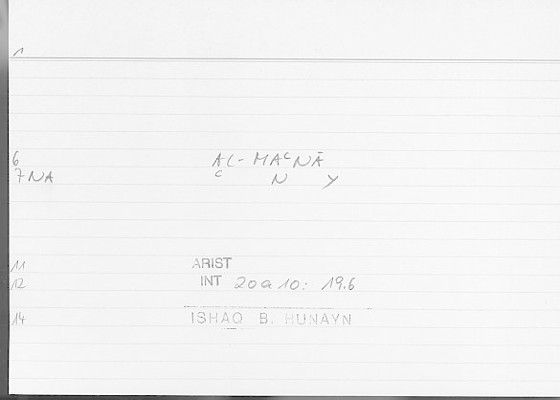 1
6 AL-MAᶜNĀ
7 NA ᶜ N Y
11 ARIST
12 INT 20a10: 19.6
14 ISHAQ B. HUNAYN